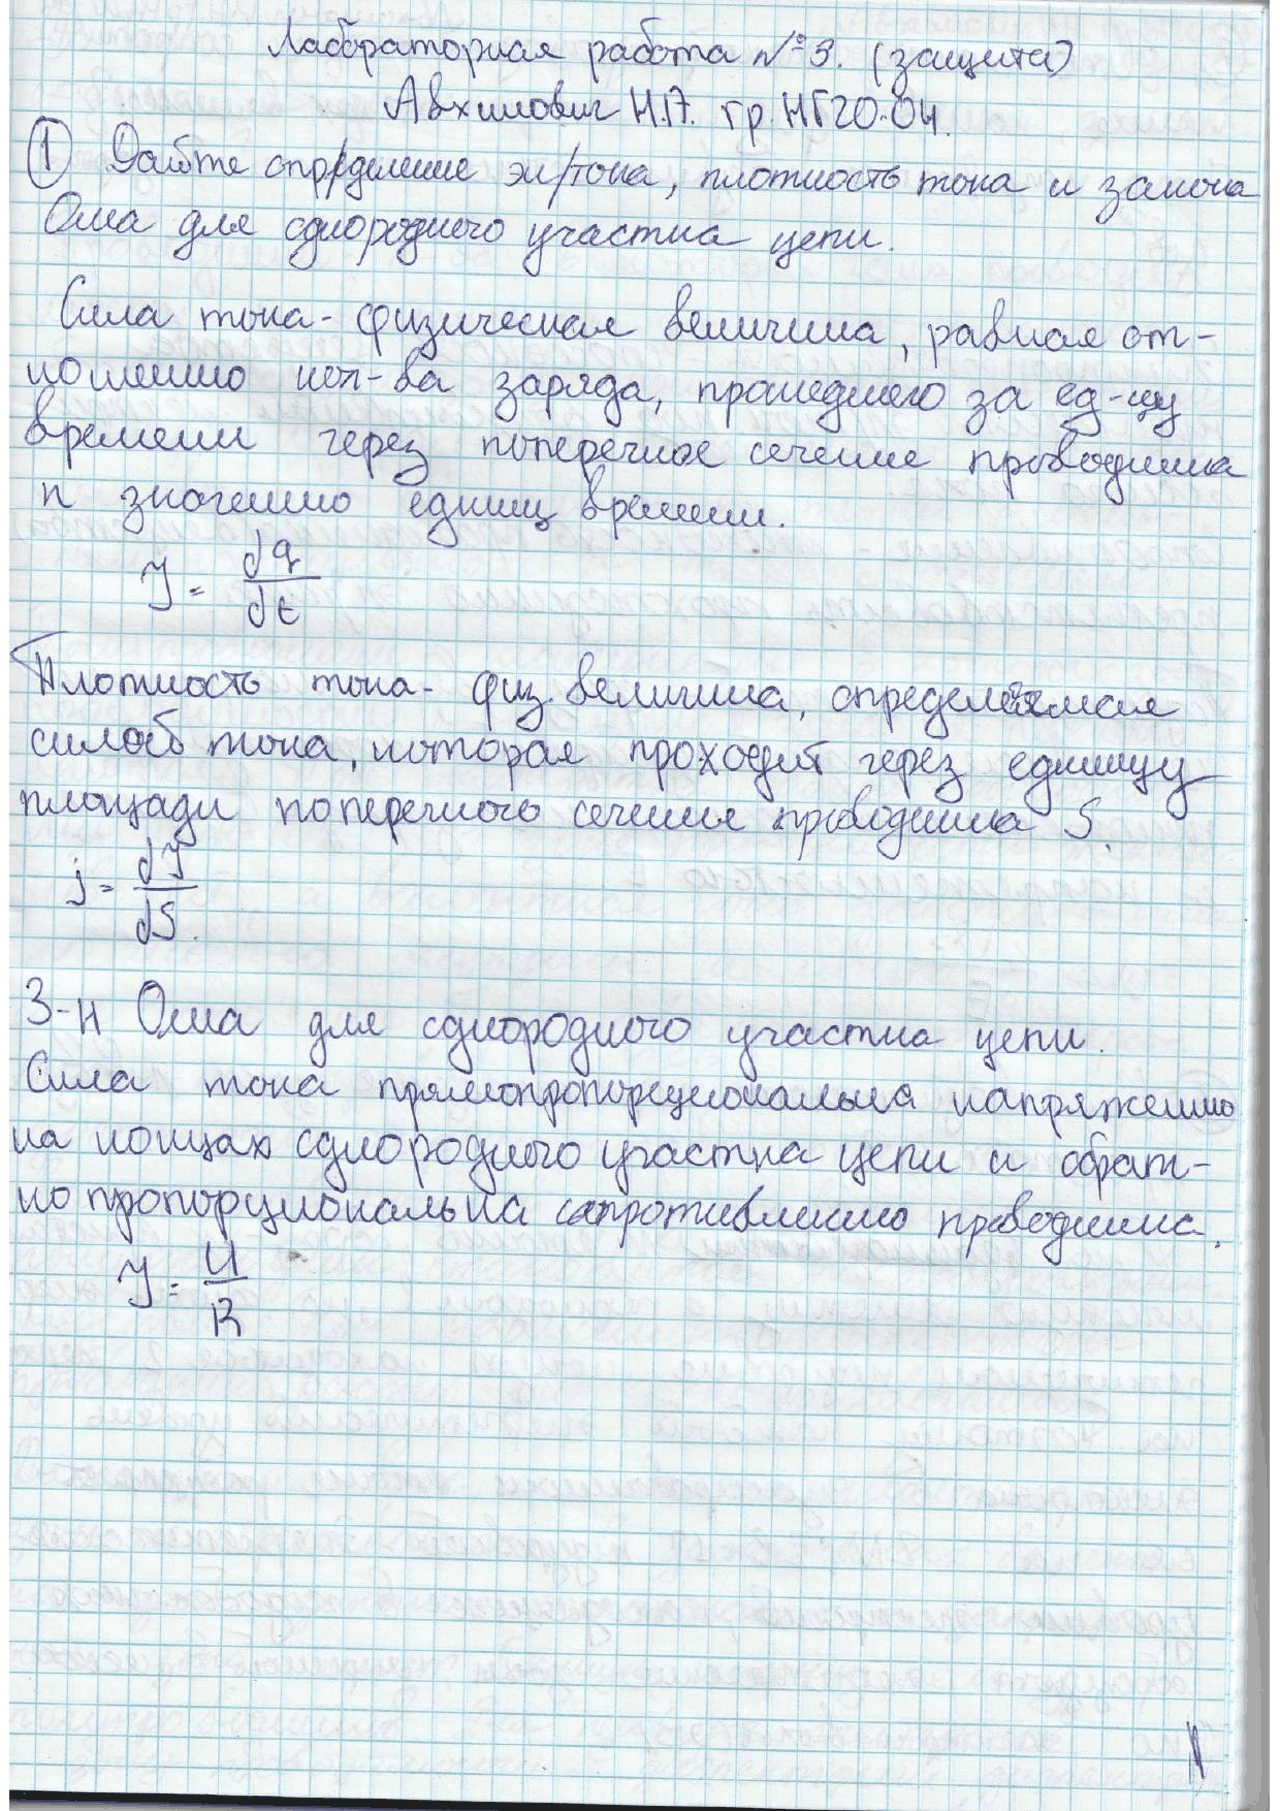 Лабораторная работа №3. (защита)
Авхимович Н.П. гр. НБ20-04.
① Дайте определение эл/тока, плотность тока и закона
Ома для однородного участка цепи.
Сила тока - физическая величина, равная от-
ношению кол-ва заряда, прошедшего за ед-цу
времени через поперечное сечение проводника
к значению единиц времени.
J = dq/dt
Плотность тока - физ. величина, определяемая
силой тока, которая проходит через единицу
площади поперечного сечения проводника S.
j = dJ/dS.
З-н Ома для однородного участка цепи.
Сила тока прямопропорциональна напряжению
на концах однородного участка цепи и обрат-
но пропорциональна сопротивлению проводника.
J = U/R